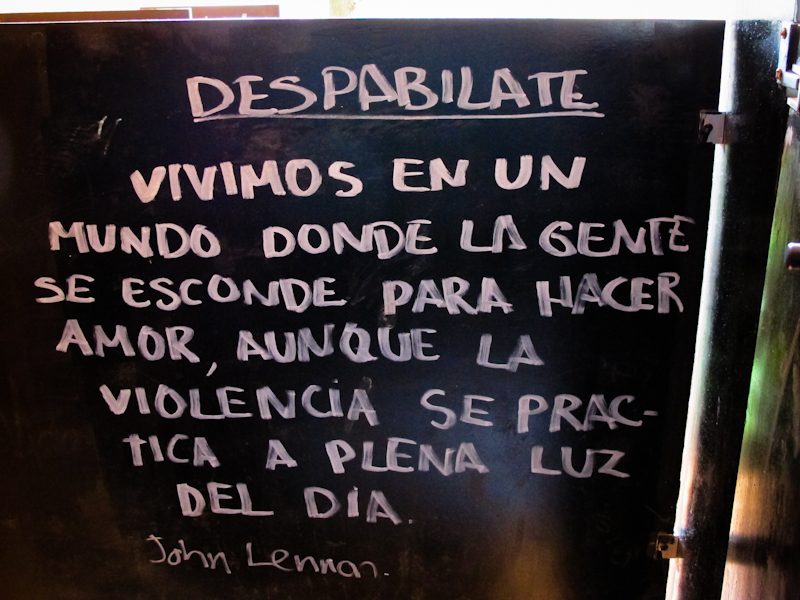 DESPABILATE
VIVIMOS EN UN
MUNDO DONDE LA GENTE
SE ESCONDE PARA HACER
AMOR, AUNQUE LA
VIOLENCIA SE PRAC-
TICA A PLENA LUZ
DEL DIA.
John Lennon.